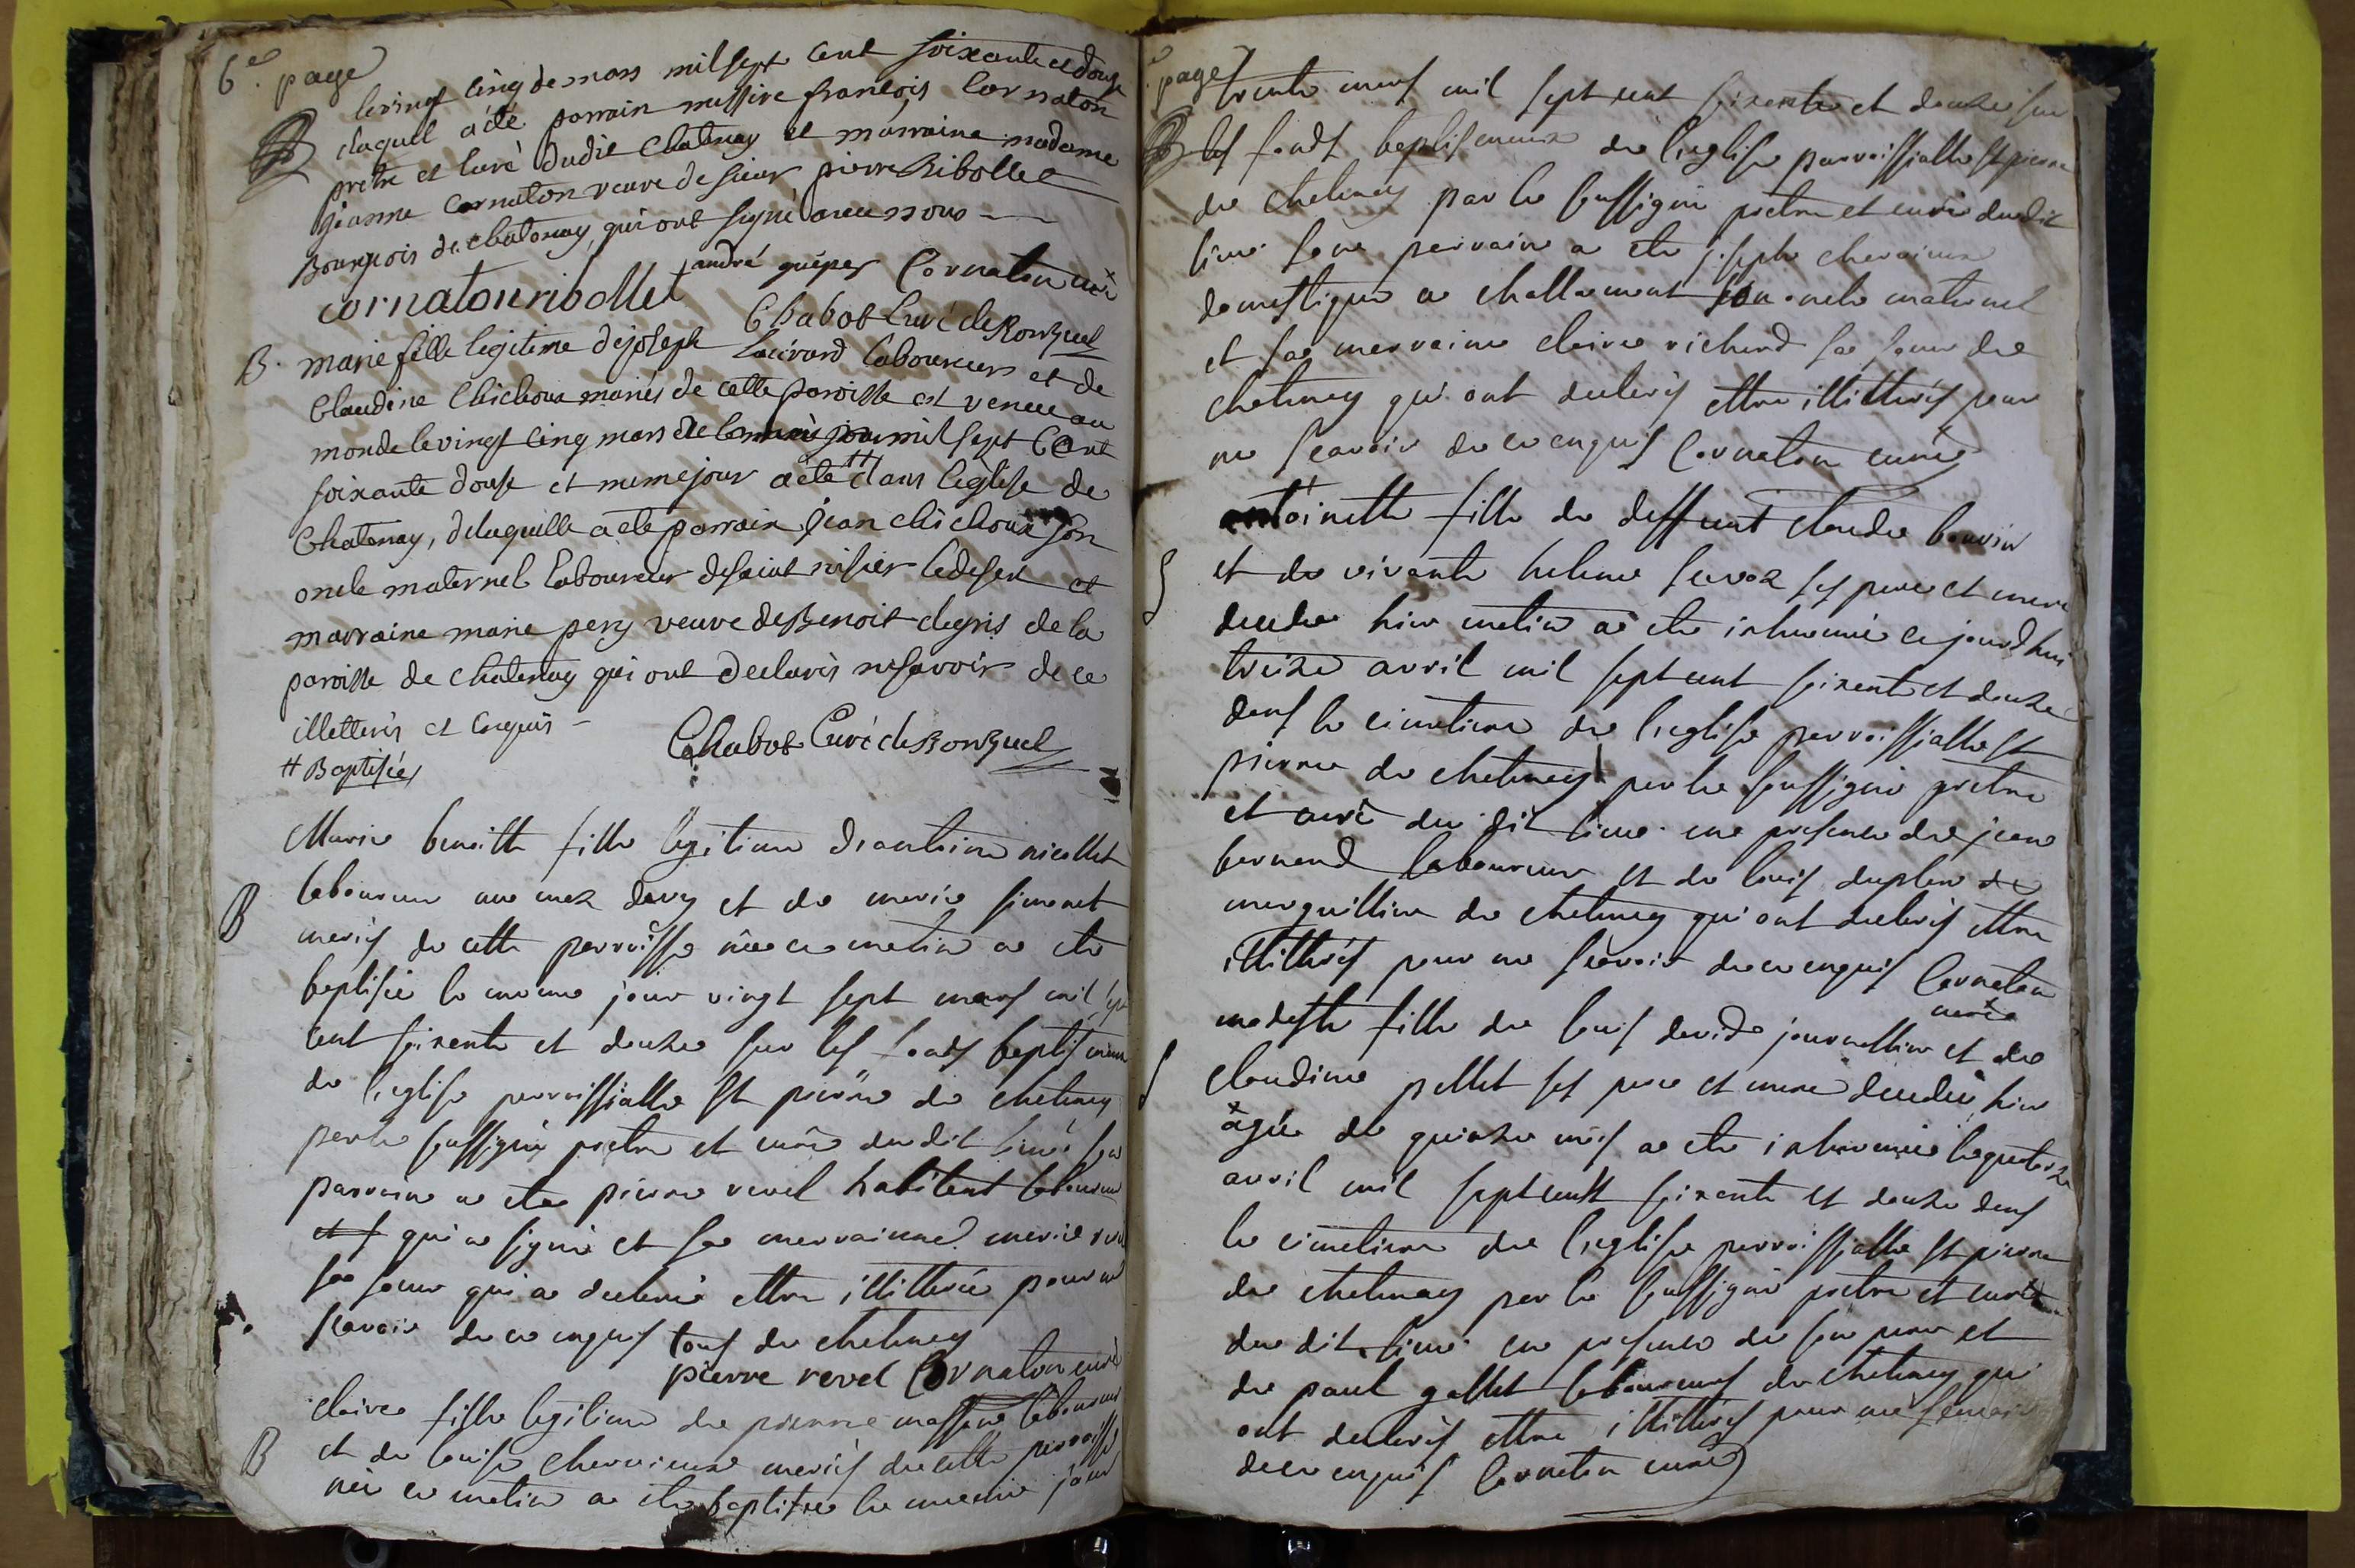 6e. page
le vingt cinq de mars mil sept cent soixante et douze
duquel a été parrain messire françois Cornaton
pretre et curé dudit Chatenay et marraine madame
jeanne Cornaton veuve de sieur pierre Ribollet
Bourgeois de chatenay, qui ont signé avec nous
cornaton ribollet andré guépey Cornaton curé
Chabot Curé de Ronzuel
B. marie fille legitime de joseph laboureur et de
Claudine Chichoux mariés de cette paroisse est venue au
monde le vingt cinq mars mil sept Cent
soixante douse et meme jour a été # dans l'eglise de
Chatenay, de laquelle a été parrain jean chichoux son
oncle maternel laboureur de saint nisier le desert et
marraine marie pery veuve de Benoit degris de la
paroisse de chatenay qui ont declarés ne savoir de ce
illetterés et enquis
# Baptisée Chabot Curé de Ronzuel
Marie benoitte fille legitime d'antoine nicollet
B laboureur au mas davy et de marie simonet
mariés de cette parroisse née ce matin a ete
baptisée le meme jour vingt sept mars mil sept
cent soixente et douze sur les fonds baptismaux
de l'eglise parroissialle st pierre de chatenay
par le soussigné pretre et curé du dit lieu son
parrain a ete pierre revel habitent laboureur
et s qui a signé et sa marraine marie revel
sa soeur qui a declaré ettre illitterée pour ne
scavoir de ce enquis tous de chatenay
pierre revel Cornaton curé
claire fille legitime de pierre laboureur
B et de louise chervieux mariés de cette parroisse
née ce matin a ete baptisée le meme jour
page 7
trente mars mil sept cent soixente et douze sur
les fonds baptismaux de l'eglise parroissialle st pierre
de chatenay par le soussigné pretre et curé dudit
lieu son parrain a ete joseph chervieux
domestique a challamont son oncle maternel
et sa marraine claire richard sa soeur de
chatenay qui ont declarés ettre illitterés pour
ne scavoir de ce enquis Cornaton curé
antoinette fille de deffunt claude bouvier
S et de vivante helene ses pere et mere
decedée hier matin a ete inhumée ce jourd'hui
treize avril mil sept cent soixente et douze
dens le cimetiere de l'eglise parroissialle st
pierre de chatenay par le soussigné pretre
et curé du dit lieu en presence de jean
bernard laboureur et de louis duplan de
merguillier de chatenay qui ont declarés ettre
illitterés pour ne scavoir de ce enquis Cornaton
curé
modeste fille de louis david journallier et de
S claudine pellet ses pere et mere decedée hier
âgée de quinze mois a ete inhumée le quatorze
avril mil sept cent soixente et douze dens
le cimetiere de l'eglise parroissialle st pierre
de chatenay par le soussigné pretre et curé
du dit lieu en presence de son pere et
de paul gallet laboureurs de chatenay qui
ont declarés ettre illitterés pour ne scavoir
de ce enquis Cornaton curé